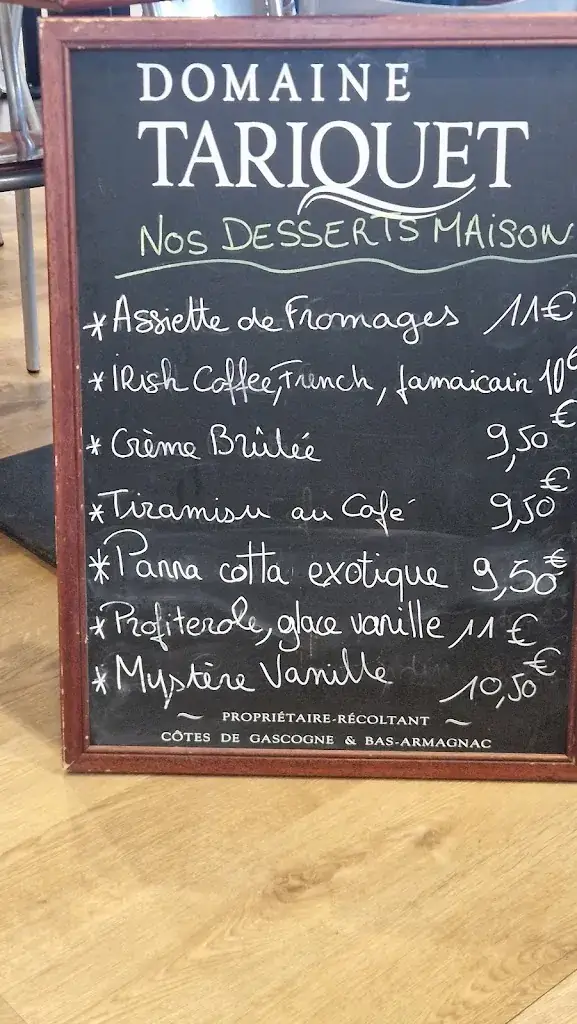 DOMAINE
TARIQUET
NOS DESSERTS MAISON
* Assiette de Fromages 11€
* IRish Coffee, French, Jamaicain 10€
* Crème Brûlée 9,50€
* Tiramisu au Café 9,50€
* Panna cotta exotique 9,50€
* Profiterole, glace vanille 11€
* Mystère Vanille 10,50€
~ PROPRIÉTAIRE-RÉCOLTANT ~
CÔTES DE GASCOGNE & BAS-ARMAGNAC